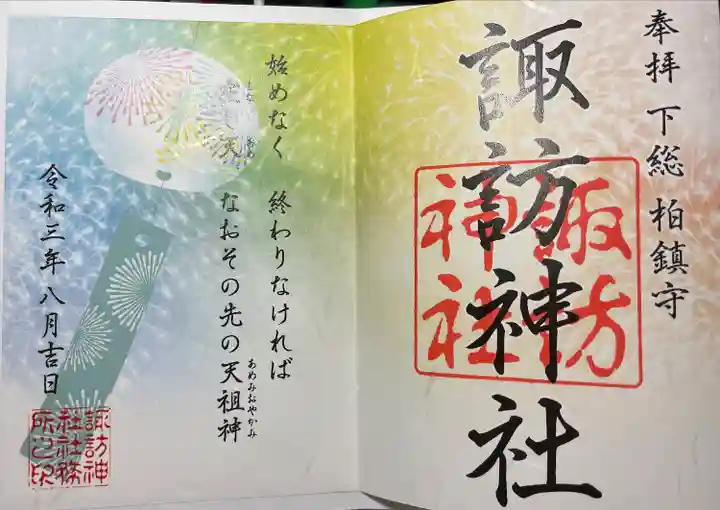 奉拝 下総 柏鎮守
諏訪神社
諏訪
神社
始めなく 終わりなければ
天
なおその先の天祖神
あめみおやかみ
令和三年八月吉日
諏訪神
社社務
所之印